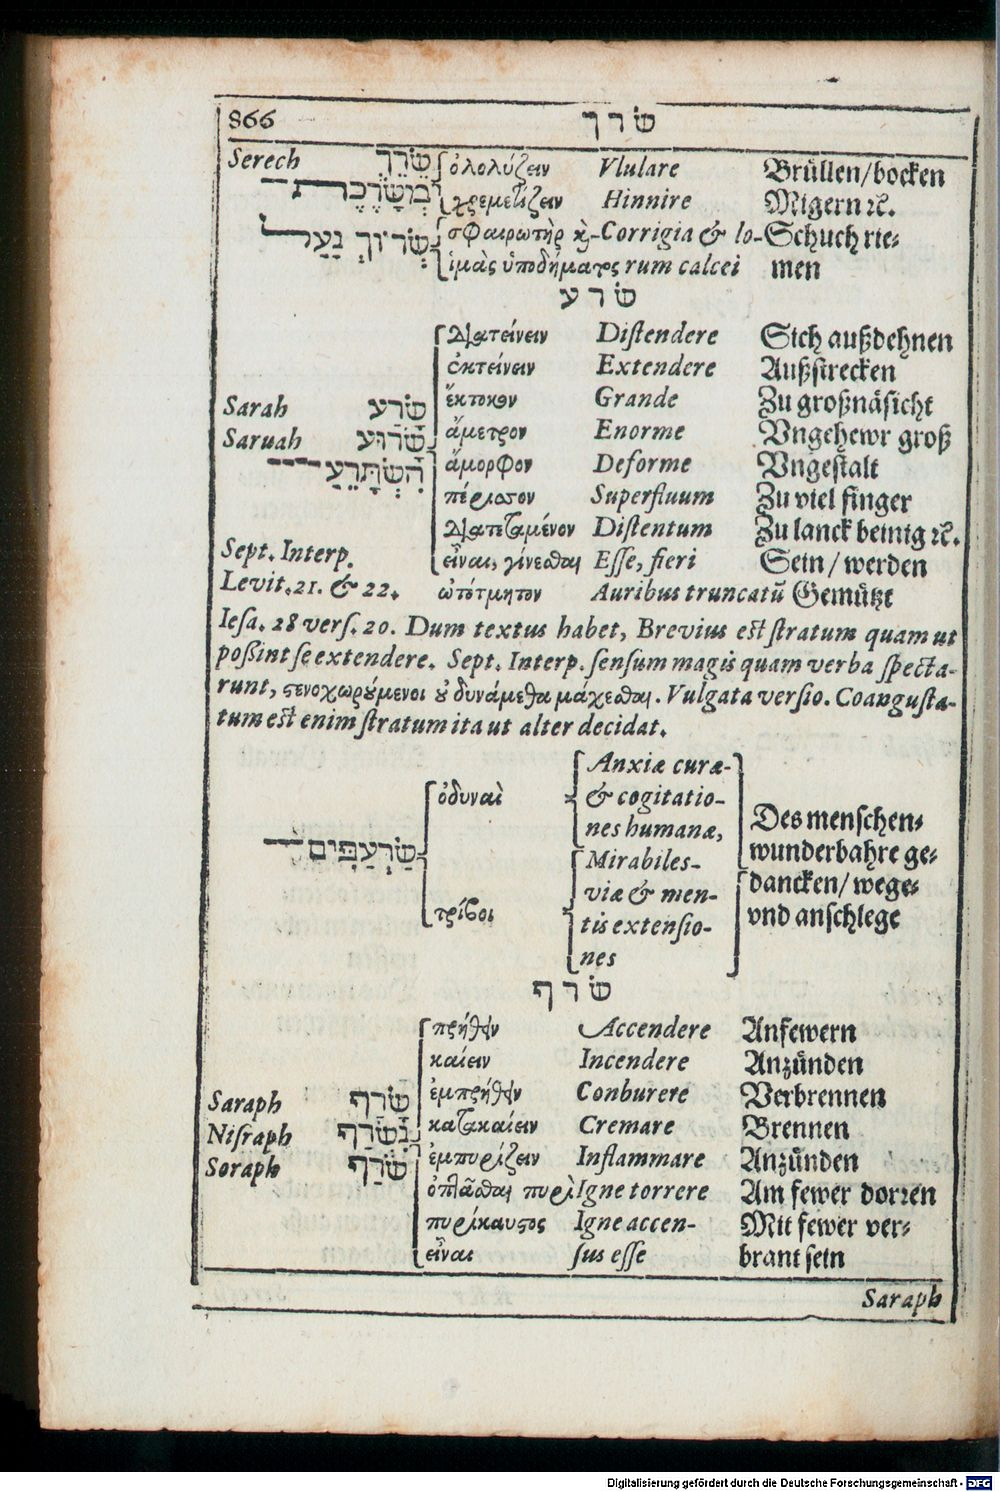 866 שׂ ר ך
Serech שֵׂרֵךְ ὀλολύζειν Vlulare Brüllen/bocken
מְשָׂרֶכֶת χρεμετίζειν Hinnire Migern ꝛc.
שְׂרוֹךְ נַעַל σφαιρωτὴρ κ̀ Corrigia & lo- Schuch rie-
ἱμὰς ὑποδήματος rum calcei men
שׂ ר ע
διατείνειν Distendere Sich außdehnen
ἐκτείνειν Extendere Außstrecken
ἔκτοκον Grande Zu großnäsicht
Sarah שָׂרַע
ἄμετρον Enorme Vngehewr groß
Saruah שָׂרוּעַ
הִשְׂתָּרֵעַ ἄμορφον Deforme Vngestalt
πέρισσον Superfluum Zu viel finger
διαπεταμένον Distentum Zu lanck beinig ꝛc.
Sept. Interp. εἶναι, γίνεσθαι Esse, fieri Sein / werden
Levit. 21. & 22. ὠτότμητον Auribus truncatū Gemützt
Iesa. 28 vers. 20. Dum textus habet, Brevius est stratum quam ut
possint se extendere. Sept. Interp. sensum magis quam verba specta-
runt, στενοχωρούμενοι οὐ δυνάμεθα μάχεσθαι. Vulgata versio. Coangusta-
tum est enim stratum ita ut alter decidat.
Anxiæ curæ-
ὀδυναὶ & cogitatio-
nes humanæ, Des menschen-
שַׂרְעַפִּים wunderbahre ge-
Mirabiles-
viæ & men- dancken/ wege-
τρίβοι tis extensio- vnd anschlege
nes
שׂ ר ף
πρήθειν Accendere Anfewern
καίειν Incendere Anzünden
Saraph שָׂרַף ἐμπρήθειν Conburere Verbrennen
Nisraph נִשְׂרַף κατακαίειν Cremare Brennen
Soraph שֹׂרַף ἐμπυρίζειν Inflammare Anzünden
ὀπτᾶσθαι πυρὶ Igne torrere Am fewer dorren
πυρίκαυστος Igne accen- Mit fewer ver-
εἶναι sus esse brant sein
Saraph
Digitalisierung gefördert durch die Deutsche Forschungsgemeinschaft - DFG